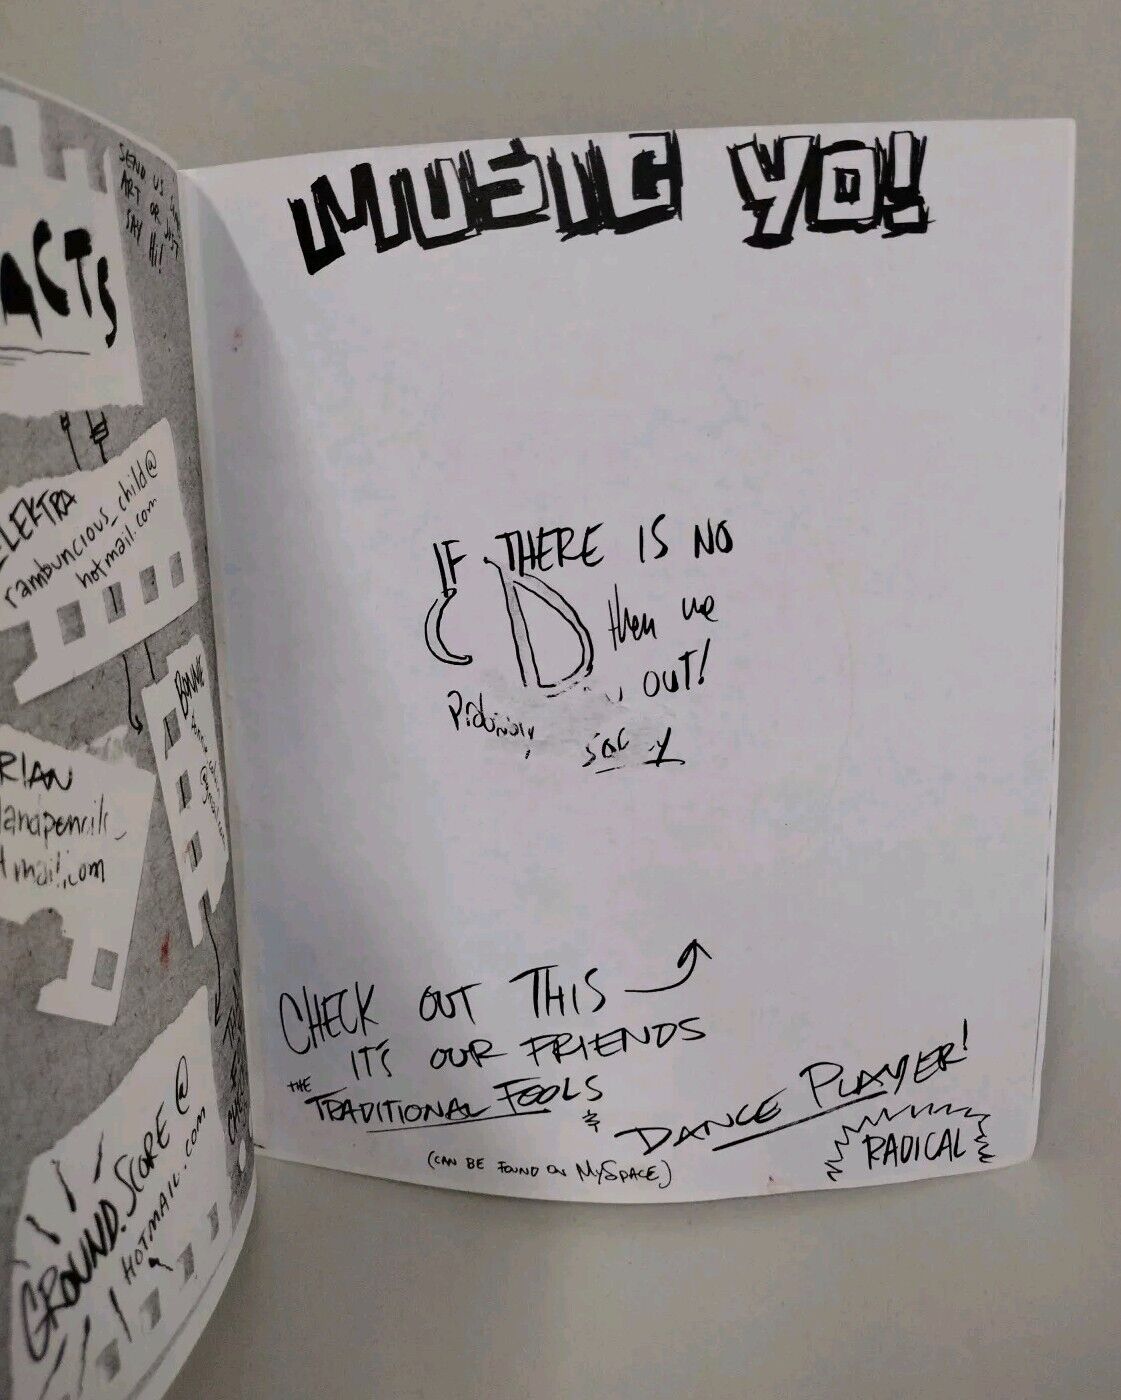 SEND US
ART OR
SAY HI!
ACTS
ELEKTRA
rambuncious_child@
hotmail.com
RIAN
landpencil_
tmail.com
GROUND.SCORE@
HOTMAIL.com
MUSIC YO!
IF THERE IS NO
CD then we
OUT!
CHECK OUT THIS
ITS OUR FRIENDS
THE TRADITIONAL FOOLS
& DANCE PLAYER!
(CAN BE FOUND ON MySPACE)
RADICAL